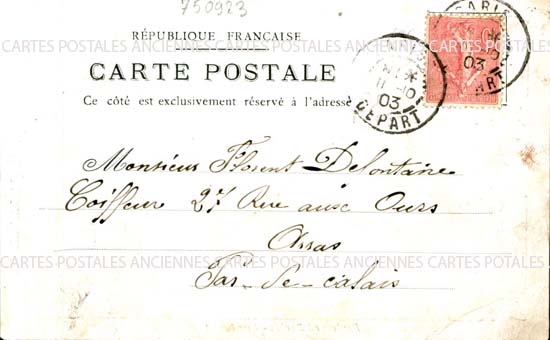 750923
RÉPUBLIQUE FRANÇAISE
CARTE POSTALE
Ce côté est exclusivement réservé à l'adresse
CARTES POSTALES ANCIENNES CARTES POSTALES ANCIENNES CARTES POSTALES
PARIS
03
DÉPART
03
Monsieur Florent Delontaine
Coiffeur 27 Rue aux Ours
Arras
Pas-de-calais
CARTES POSTALES ANCIENNES CARTES POSTALES ANCIENNES CARTES POSTALES